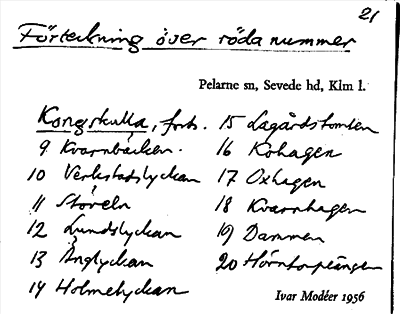 21
Förteckning över röda nummer
Pelarne sn, Sevede hd, Klm l.
Kongskulla, forts.
9 Kvarnbäcken.
10 Verkstadslyckan
11 Storeln
12 Lundslyckan
13 Änglyckan
14 Holmelyckan
15 Lagårdstomten
16 Kohagen
17 Oxhagen
18 Kvarnhagen
19 Dammen
20 Hörntorpängen
Ivar Modéer 1956